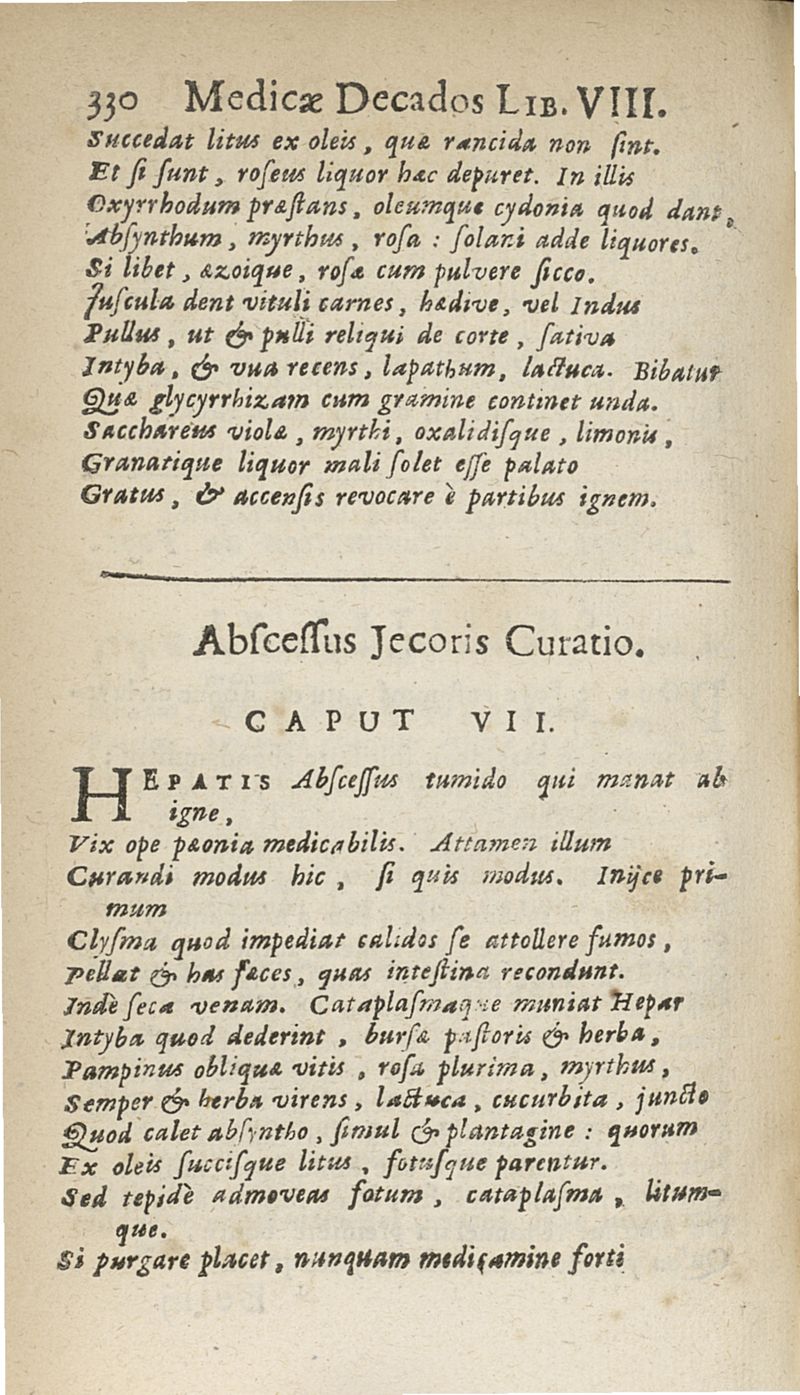 330 Medicæ Decados LIB. VIII.
Succedat litus ex oleis, quæ rancida non ſint.
Et ſi ſunt, roſeus liquor hæc depuret. In illis
Oxyrrhodum præſtans, oleumque cydonia quod dant,
Abſynthum, myrthus, roſa : ſolani adde liquores.
Si libet, æzoique, roſæ cum pulvere ſicco.
Juſcula dent vituli carnes, hædive, vel Indus
Pullus, ut & pulli reliqui de corte, ſativa
Intyba, & vua recens, lapathum, lactuca. Bibatur
Quæ glycyrrhizam cum gramine continet unda.
Sacchareus violæ, myrthi, oxalidiſque, limonis,
Granatique liquor mali ſolet eſſe palato
Gratus, & accenſis revocare è partibus ignem.
Abſceſſus Jecoris Curatio.
CAPUT VII.
HEPATIS Abſceſſus tumido qui manat ab
igne,
Vix ope pæonia medicabilis. Attamen illum
Curandi modus hic, ſi quis modus. Inijce pri-
mum
Clyſma quod impediat calidos ſe attollere fumos,
Pellat & has fæces, quas inteſtina recondunt.
Indè ſeca venam. Cataplaſmaque muniat Hepar
Intyba quod dederint, burſæ paſtoris & herba,
Pampinus obliquæ vitis, roſa plurima, myrthus,
Semper & herba virens, lactuca, cucurbita, juncto
Quod calet abſyntho, ſimul & plantagine : quorum
Ex oleis ſucciſque litus, fotuſque parentur.
Sed tepidè admoveas fotum, cataplaſma, litum-
que.
Si purgare placet, nunquam medicamine forti